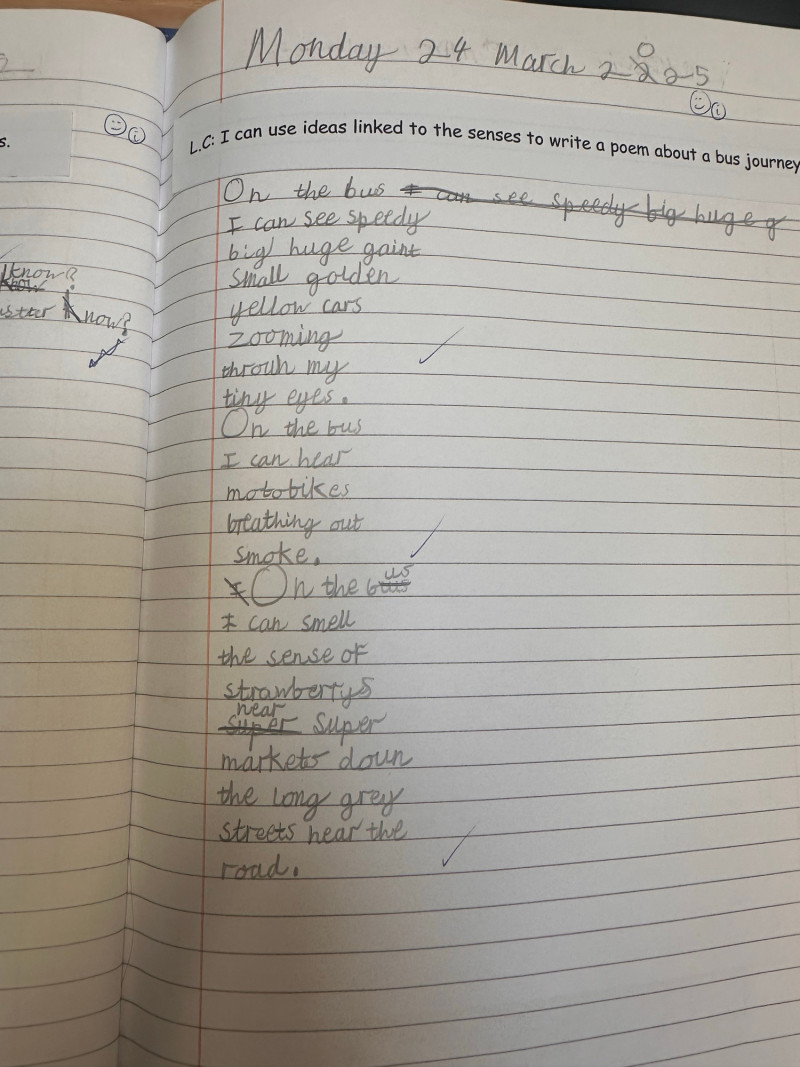 Monday 24 March 2025
s.
L.C: I can use ideas linked to the senses to write a poem about a bus journey
On the bus I can see speedy big huge g
I can see speedy
big huge gaint
small golden
yellow cars
zooming
throuh my
tiny eyes.
On the bus
I can hear
motobikes
breathing out
smoke.
I On the bus
I can smell
the sense of
strawberrys
near
super super
markets doun
the long grey
streets near the
road.
know?
know?